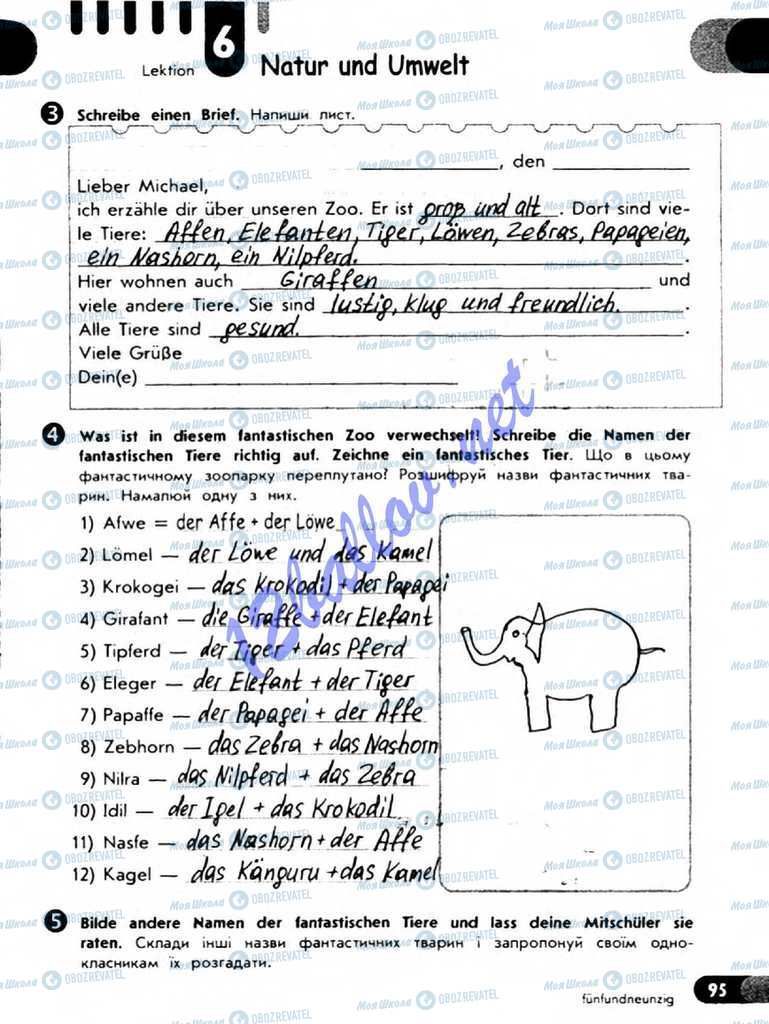 6
Lektion Natur und Umwelt
3 Schreibe einen Brief. Напиши лист.
_______________, den _______________
Lieber Michael,
ich erzähle dir über unseren Zoo. Er ist groß und alt. Dort sind vie-
le Tiere: Affen, Elefanten, Tiger, Löwen, Zebras, Papageien,
ein Nashorn, ein Nilpferd.
Hier wohnen auch Giraffen und
viele andere Tiere. Sie sind lustig, klug und freundlich.
Alle Tiere sind gesund.
Viele Grüße
Dein(e) _______________
4 Was ist in diesem fantastischen Zoo verwechselt! Schreibe die Namen der
fantastischen Tiere richtig auf. Zeichne ein fantastisches Tier. Що в цьому
фантастичному зоопарку переплутано? Розшифруй назви фантастичних тва-
рин. Намалюй одну з них.
1) Afwe = der Affe + der Löwe
2) Lömel — der Löwe und das Kamel
3) Krokogei — das Krokodil + der Papagei
4) Girafant — die Giraffe + der Elefant
5) Tipferd — der Tiger + das Pferd
6) Eleger — der Elefant + der Tiger
7) Papaffe — der Papagei + der Affe
8) Zebhorn — das Zebra + das Nashorn
9) Nilra — das Nilpferd + das Zebra
10) Idil — der Igel + das Krokodil
11) Nasfe — das Nashorn + der Affe
12) Kagel — das Känguru + das Kamel
5 Bilde andere Namen der fantastischen Tiere und lass deine Mitschüler sie
raten. Склади інші назви фантастичних тварин і запропонуй своїм одно-
класникам їх розгадати.
fünfundneunzig 95
Моя Школа OBOZREVATEL